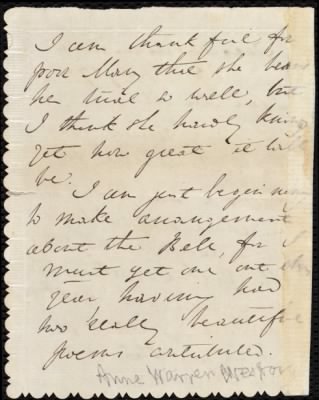 I am thankful for
poor Mary that she bears
her trial so well, but
I think she hardly knows
yet how great it will
be.
I am just beginning
to make arrangement
about the Bell, for I
must get one out this
year, having had
two really beautiful
poems contributed.
Anne Warren Weston